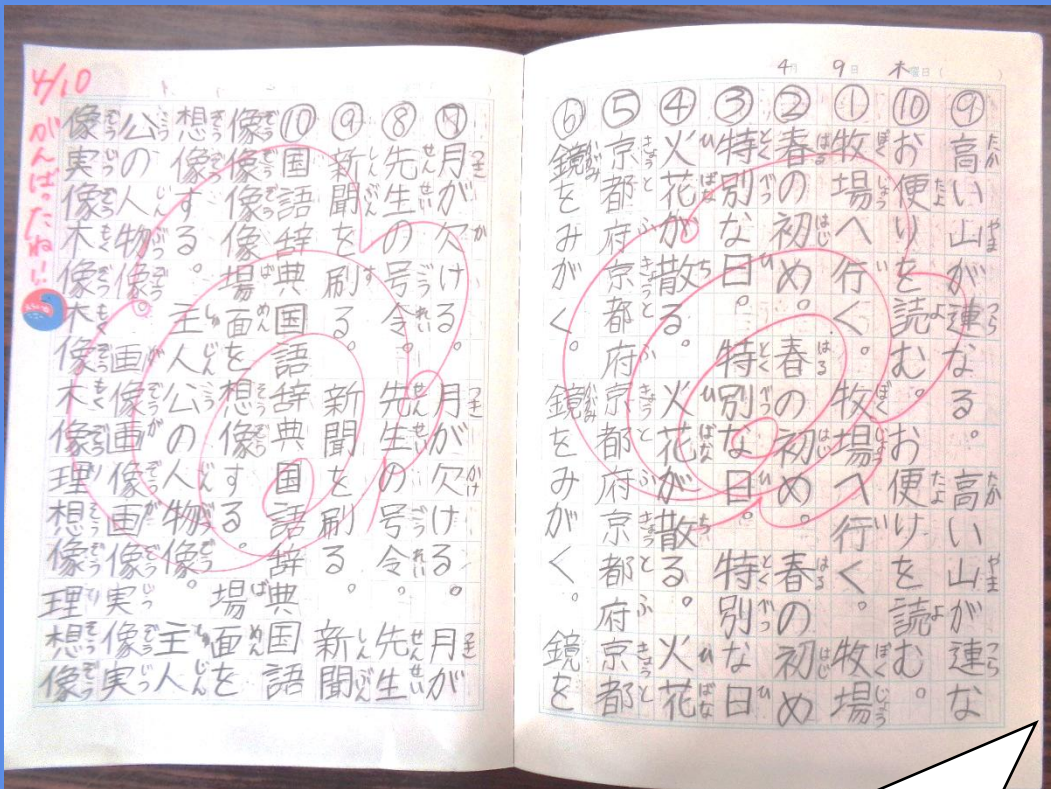 4月 9日 木曜日( )
⑨高い山が連なる。高い山が連な
⑩お便りを読む。お便りを読む。
①牧場へ行く。牧場へ行く。牧場
②春の初め。春の初め。春の初め
③特別な日。特別な日。特別な日
④火花が散る。火花が散る。火花
⑤京都府京都府京都府京都府京都
⑥鏡をみがく。鏡をみがく。鏡を
⑦月が欠ける。月が欠ける。月が
⑧先生の号令。先生の号令。先生
⑨新聞を刷る。新聞を刷る。新聞
⑩国語辞典国語辞典国語辞典国語
像像像場面を想像する。場面を
想像する。主人公の人物像。主人
公の人物像画像画像画像実像実
像実像木像木像木像理想像理想像
4/10 がんばったね!!